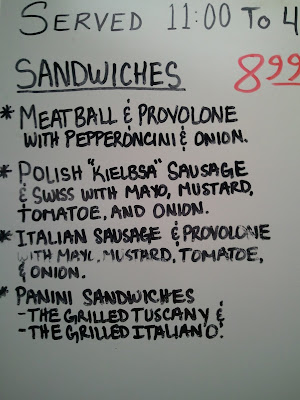 SERVED 11:00 TO 4
SANDWICHES 8.99
* MEATBALL & PROVOLONE
WITH PEPPERONCINI & ONION.
* POLISH "KIELBSA" SAUSAGE
& SWISS WITH MAYO, MUSTARD,
TOMATOE, AND ONION.
* ITALIAN SAUSAGE & PROVOLONE
WITH MAYO, MUSTARD, TOMATOE,
& ONION.
* PANINI SANDWICHES
-THE GRILLED TUSCANY &
-THE GRILLED ITALIAN'O'.